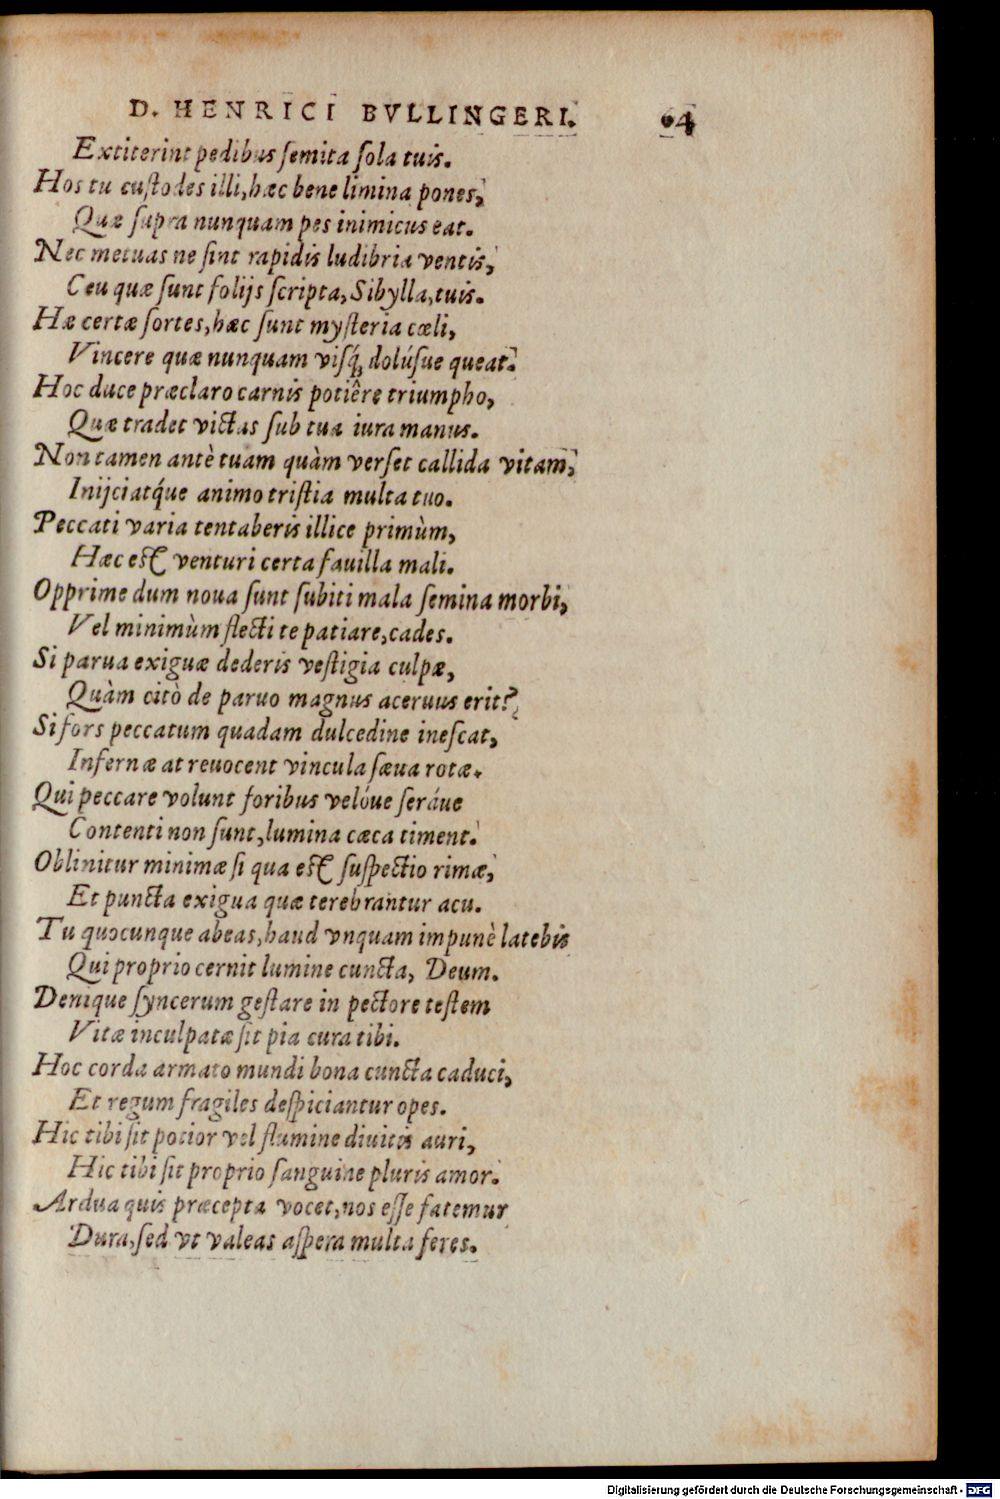 D. HENRICI BVLLINGERI. 64
Extiterint pedibus ſemita ſola tuis.
Hos tu cuſtodes illi, hæc bene limina pones,
Quæ ſupra nunquam pes inimicus eat.
Nec metuas ne ſint rapidis ludibria ventis,
Ceu quæ ſunt folijs ſcripta, Sibylla, tuis.
Hæ certæ ſortes, hæc ſunt myſteria cœli,
Vincere quæ nunquam viſq́; dolúſue queat.
Hoc duce præclaro carnis potiêre triumpho,
Quæ tradet victas ſub tua iura manus.
Non tamen antè tuam quàm verſet callida vitam,
Inijciatq́ue animo triſtia multa tuo.
Peccati varia tentaberis illice primùm,
Hæc eſt venturi certa fauilla mali.
Opprime dum noua ſunt ſubiti mala ſemina morbi,
Vel minimùm flecti te patiare, cades.
Si parua exiguæ dederis veſtigia culpæ,
Quàm citò de paruo magnus aceruus erit?
Si fors peccatum quadam dulcedine ineſcat,
Infernæ at reuocent vincula ſæua rotæ.
Qui peccare volunt foribus velóue ſeráue
Contenti non ſunt, lumina cæca timent.
Oblinitur minimæ ſi qua eſt ſuſpectio rimæ,
Et puncta exigua quæ terebrantur acu.
Tu quocunque abeas, haud vnquam impunè latebis
Qui proprio cernit lumine cuncta, Deum.
Denique ſyncerum geſtare in pectore teſtem
Vitæ inculpatæ ſit pia cura tibi.
Hoc corda armato mundi bona cuncta caduci,
Et regum fragiles deſpiciantur opes.
Hic tibi ſit potior vel flumine diuitis auri,
Hic tibi ſit proprio ſanguine pluris amor.
Ardua quis præcepta vocet, nos eſſe fatemur
Dura, ſed vt valeas aſpera multa feres.
Digitalisierung gefördert durch die Deutsche Forschungsgemeinschaft - DFG